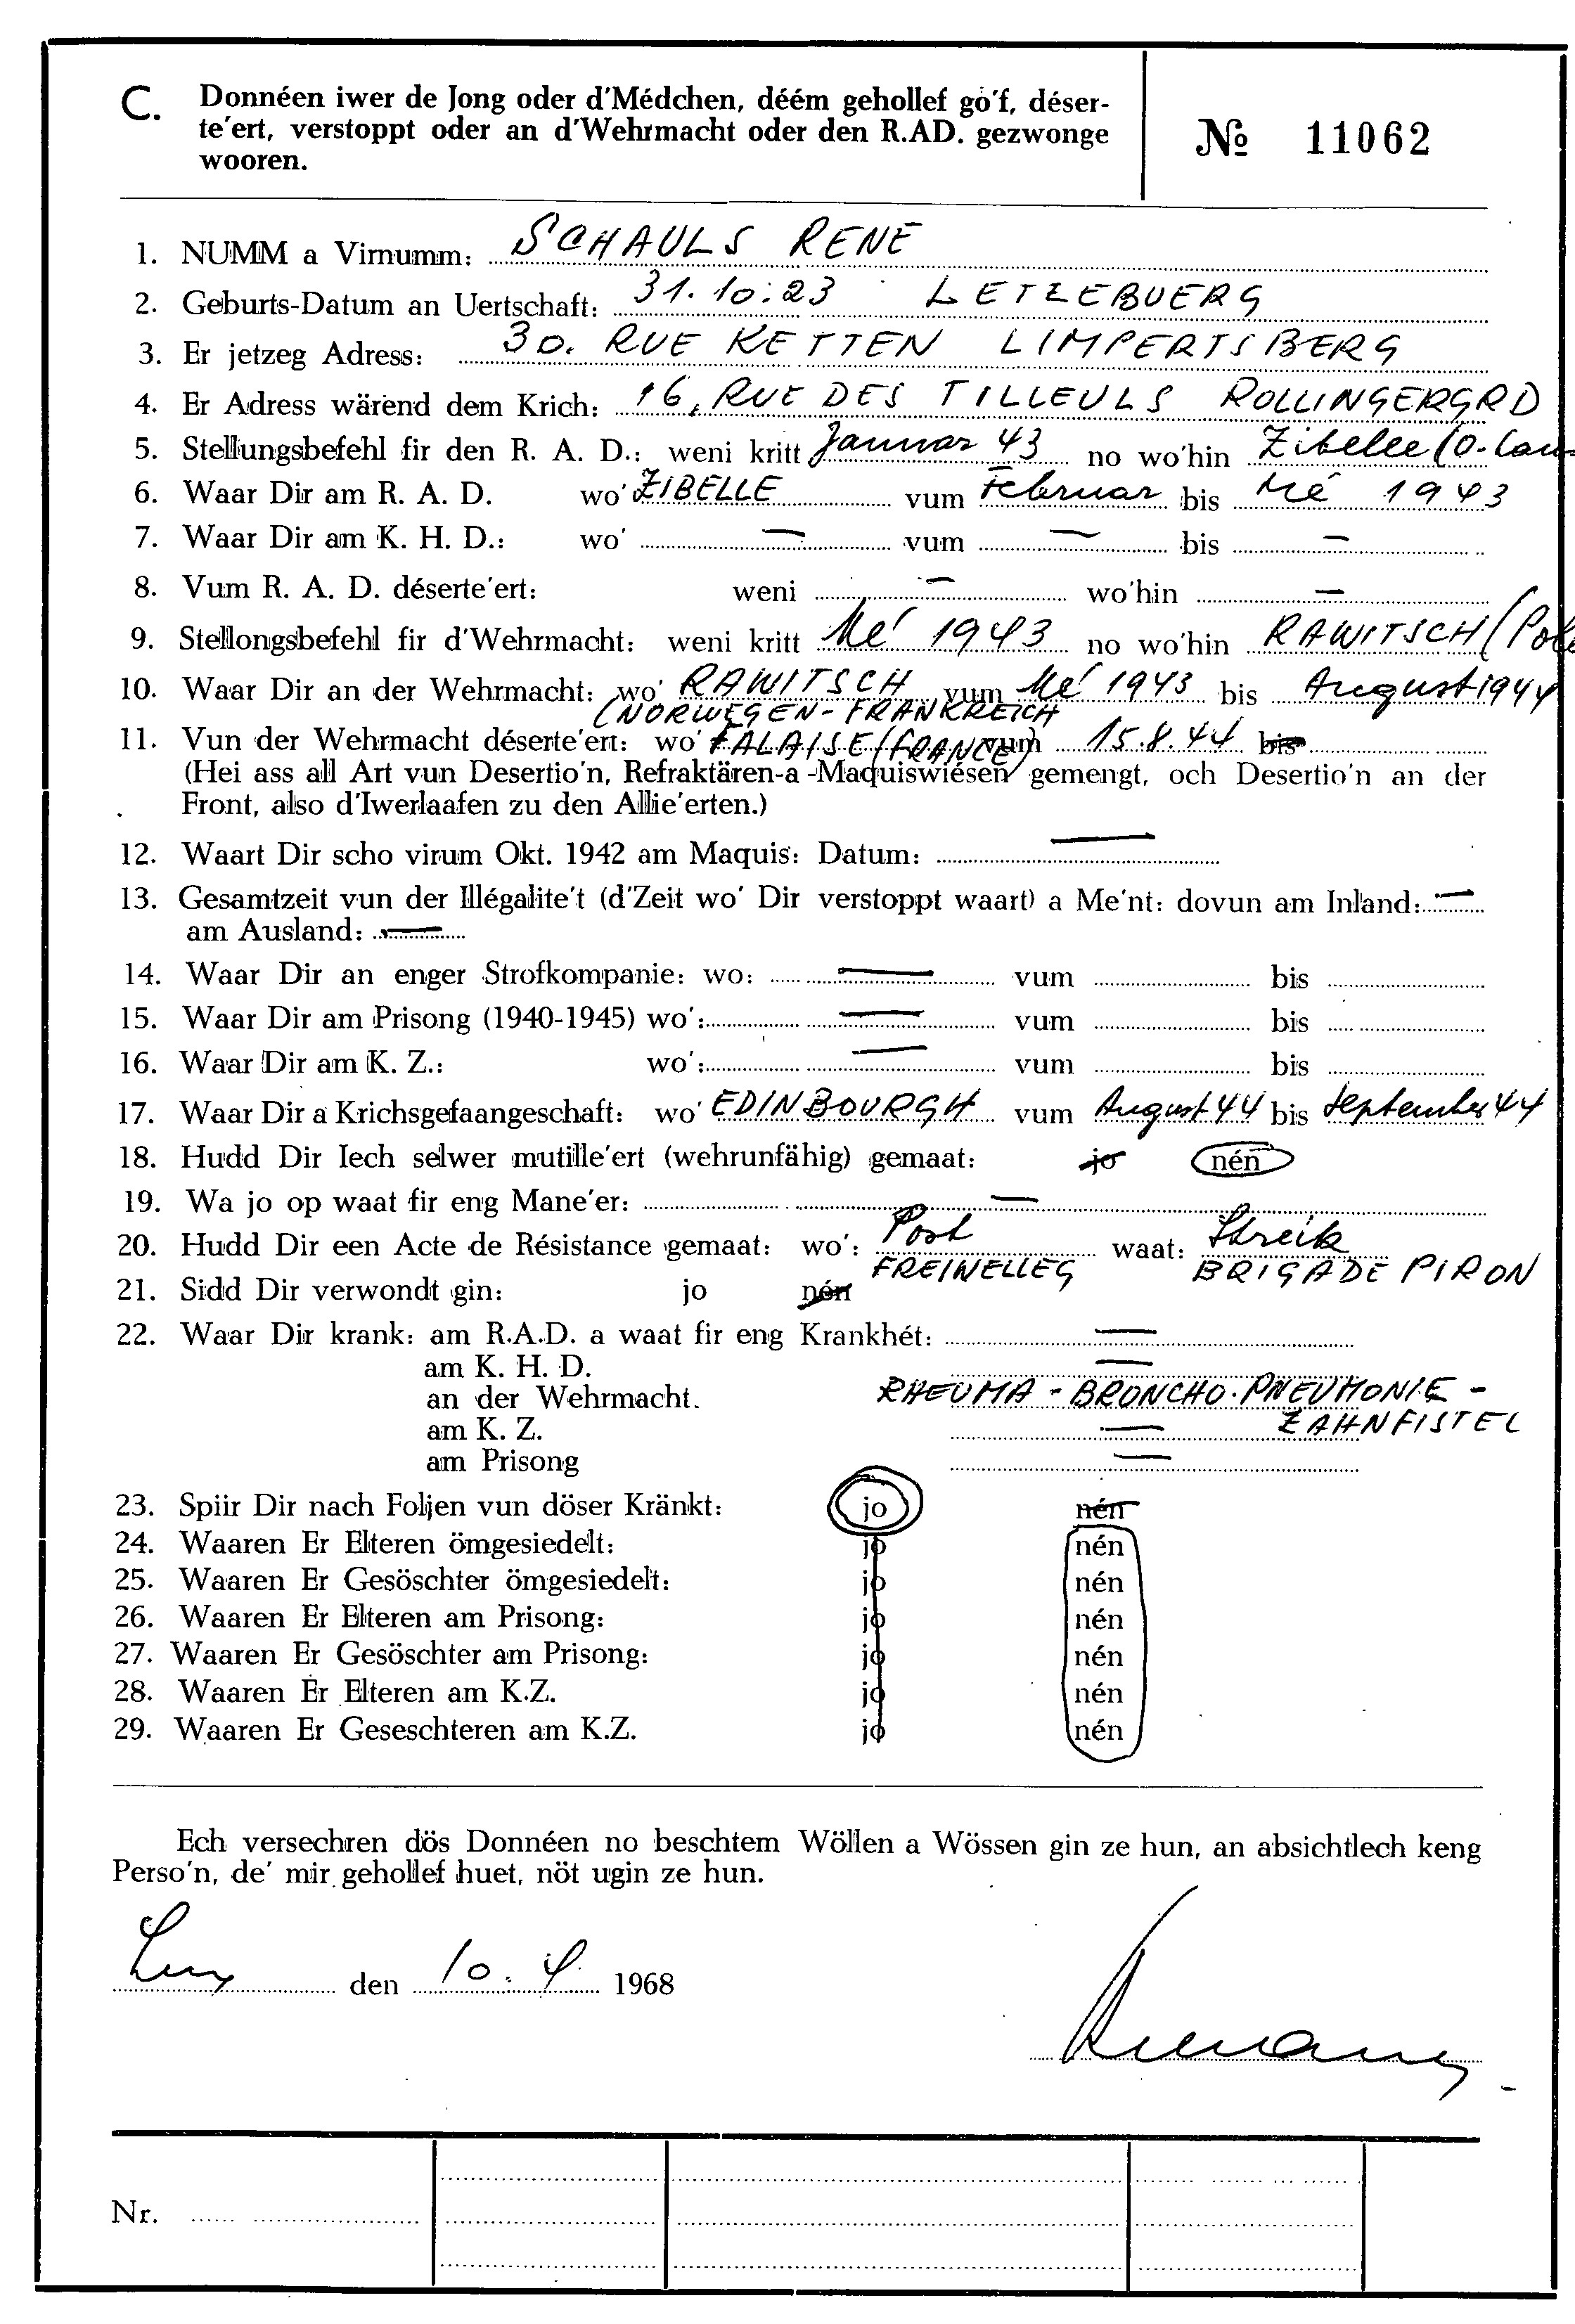 C. Donnéen iwer de Jong oder d'Médchen, déém gehollef go'f, déser-
te'ert, verstoppt oder an d'Wehrmacht oder den R.AD. gezwonge
wooren.
№ 11062
1. NUMM a Virnumm: SCHAULS RENE
2. Geburts-Datum an Uertschaft: 31.10.23 LETZEBUERG
3. Er jetzeg Adress: 30. RUE KETTEN LIMPERTSBERG
4. Er Adress wärend dem Krich: 16, RUE DES TILLEULS ROLLINGERGRD
5. Stellungsbefehl fir den R. A. D.: weni kritt Januar 43 no wo'hin Zibelle (O. Lau
6. Waar Dir am R. A. D. wo' ZIBELLE vum Februar bis Mé 1943
7. Waar Dir am K. H. D.: wo' — vum — bis —
8. Vum R. A. D. déserte'ert: weni — wo'hin —
9. Stellongsbefehl fir d'Wehrmacht: weni kritt Mé 1943 no wo'hin RAWITSCH (Pole
10. Waar Dir an der Wehrmacht: wo' RAWITSCH vum Mé 1943 bis August 1944
(NORWEGEN - FRANKREICH
11. Vun der Wehrmacht déserte'ert: wo' FALAISE (FRANCE) vum 15.8.44 bis
(Hei ass all Art vun Desertio'n, Refraktären-a -Maquiswiésen gemengt, och Desertio'n an der
Front, also d'Iwerlaafen zu den Allie'erten.)
12. Waart Dir scho virum Okt. 1942 am Maquis: Datum: —
13. Gesamtzeit vun der Illégalite't (d'Zeit wo' Dir verstoppt waart) a Me'nt: dovun am Inland: —
am Ausland: —
14. Waar Dir an enger Strofkompanie: wo: — vum bis
15. Waar Dir am Prisong (1940-1945) wo': — vum bis
16. Waar Dir am K. Z.: wo': — vum bis
17. Waar Dir a Krichsgefaangeschaft: wo' EDINBOURGH vum August 44 bis September 44
18. Hudd Dir Iech selwer mutille'ert (wehrunfähig) gemaat: jo nén
19. Wa jo op waat fir eng Mane'er: —
20. Hudd Dir een Acte de Résistance gemaat: wo': Post waat: Streik
FREIWELLEG BRIGADE PIRON
21. Sidd Dir verwondt gin: jo nén
22. Waar Dir krank: am R.A.D. a waat fir eng Krankhét: —
am K. H. D. —
an der Wehrmacht. RHEUMA - BRONCHO-PNEUMONIE -
ZAHNFISTEL
am K. Z. —
am Prisong —
23. Spiir Dir nach Foljen vun döser Kränkt: jo nén
24. Waaren Er Elteren ömgesiedelt: jo nén
25. Waaren Er Gesöschter ömgesiedelt: jo nén
26. Waaren Er Elteren am Prisong: jo nén
27. Waaren Er Gesöschter am Prisong: jo nén
28. Waaren Er Elteren am K.Z. jo nén
29. Waaren Er Geseschteren am K.Z. jo nén
Ech versechren dös Donnéen no beschtem Wöllen a Wössen gin ze hun, an absichtlech keng
Perso'n, de' mir gehollef huet, nöt ugin ze hun.
Lux den 10. 4. 1968
Nr.